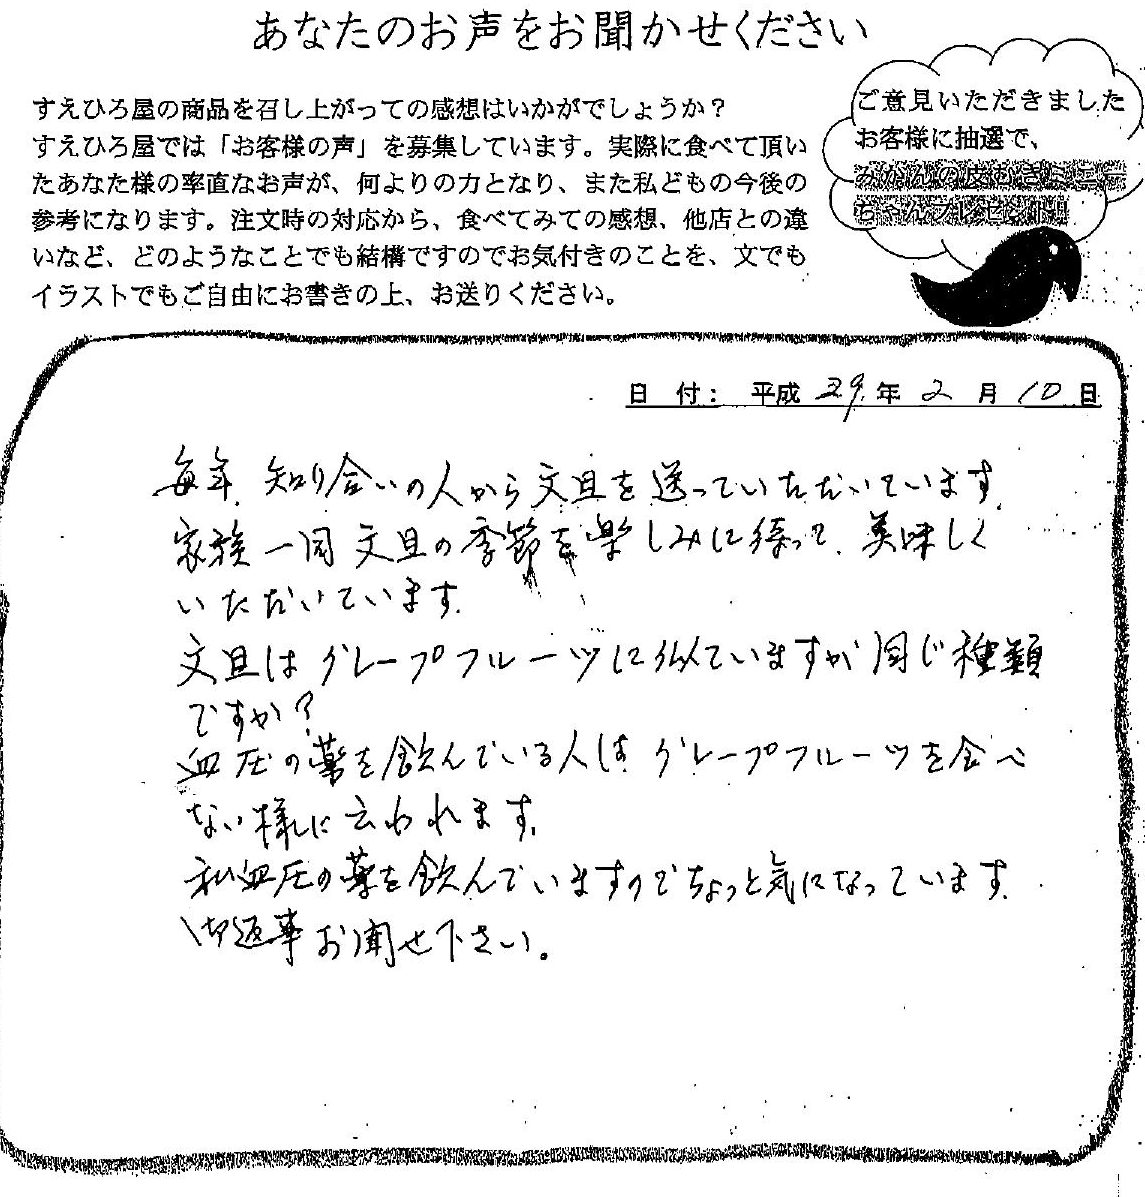 あなたのお声をお聞かせください
すえひろ屋の商品を召し上がっての感想はいかがでしょうか？
すえひろ屋では「お客様の声」を募集しています。実際に食べて頂い
たあなた様の率直なお声が、何よりの力となり、また私どもの今後の
参考になります。注文時の対応から、食べてみての感想、他店との違
いなど、どのようなことでも結構ですのでお気付きのことを、文でも
イラストでもご自由にお書きの上、お送りください。
ご意見いただきました
お客様に抽選で、
みかんの皮むきミニー
ちゃんプレゼント!!
日 付： 平成 29 年 2 月 10 日
毎年、知り合いの人から文旦を送っていただいています。
家族一同文旦の季節を楽しみに待って、美味しく
いただいています。
文旦はグレープフルーツに似ていますが同じ種類
ですか？
血圧の薬を飲んでいる人はグレープフルーツを食べ
ない様に云われます。
私血圧の薬を飲んでいますのでちょっと気になっています。
御返事お聞せ下さい。